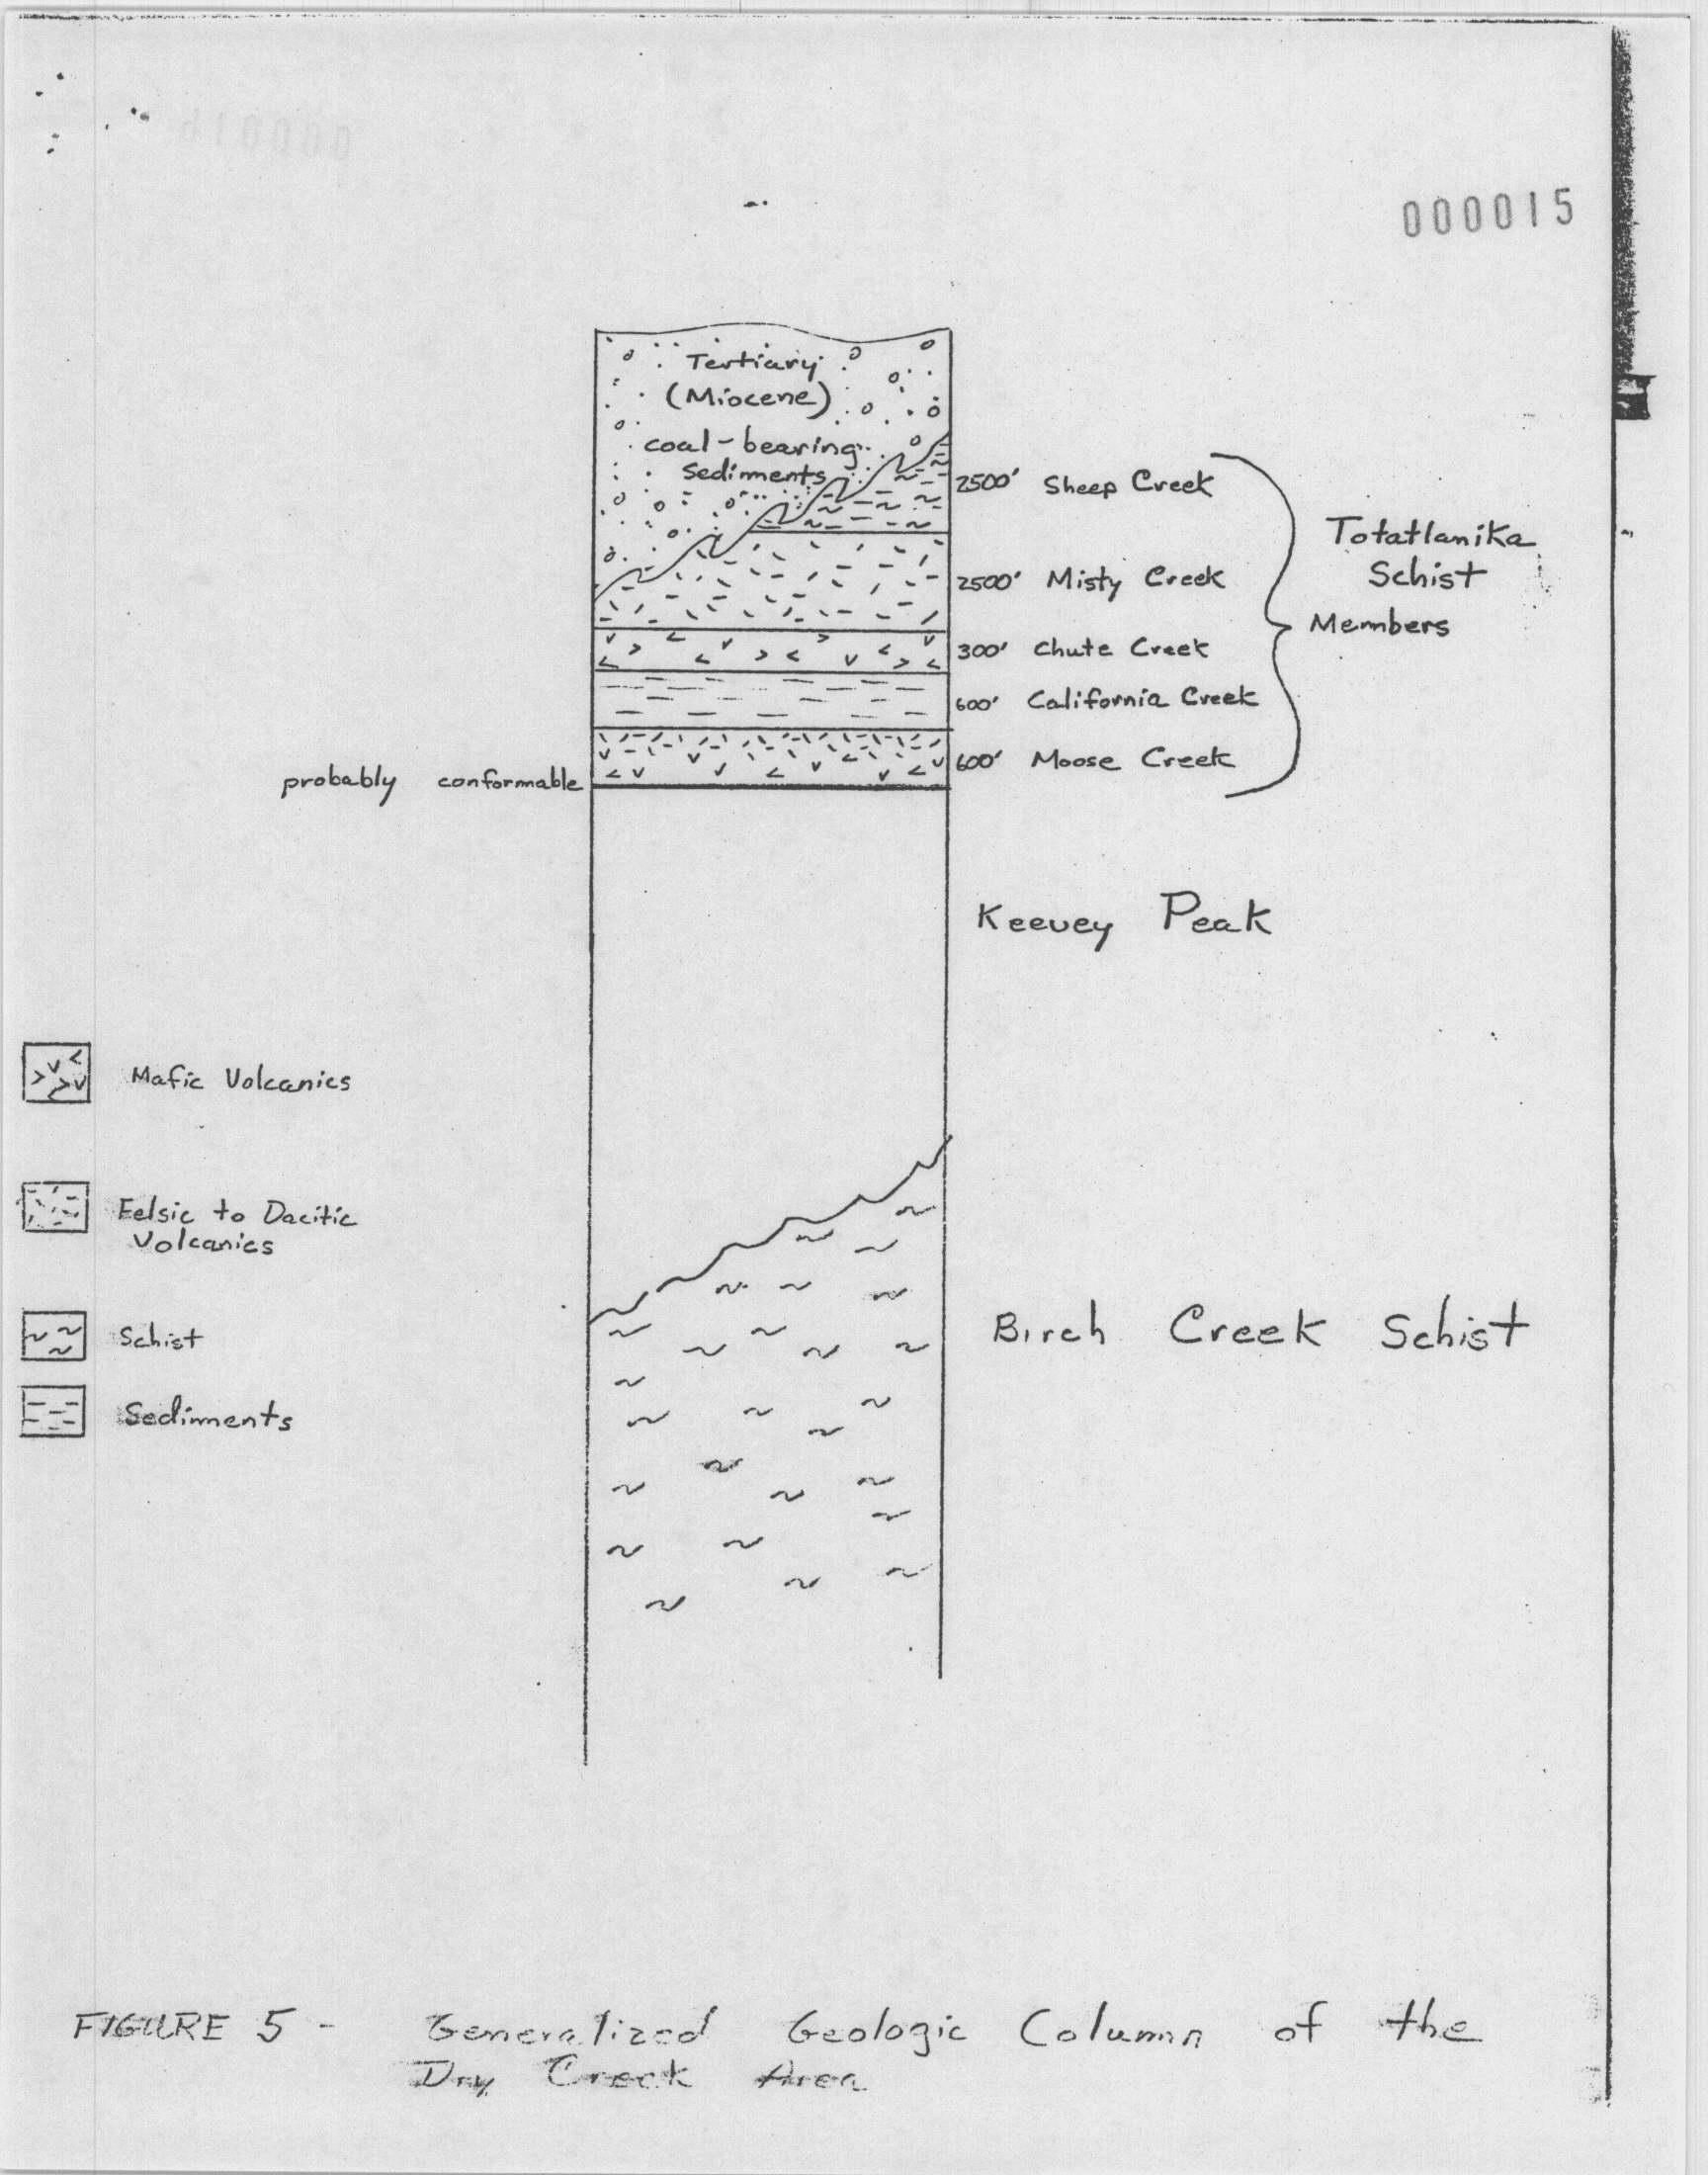 000015
Tertiary
(Miocene)
coal-bearing
Sediments
2500' Sheep Creek
2500' Misty Creek
300' Chute Creek
600' California Creek
600' Moose Creek
Totatlanika
Schist
Members
probably conformable
Keevey Peak
Mafic Volcanics
Felsic to Dacitic
Volcanics
Schist
Sediments
Birch Creek Schist
FIGURE 5 - Generalized Geologic Column of the
Dry Creek Area